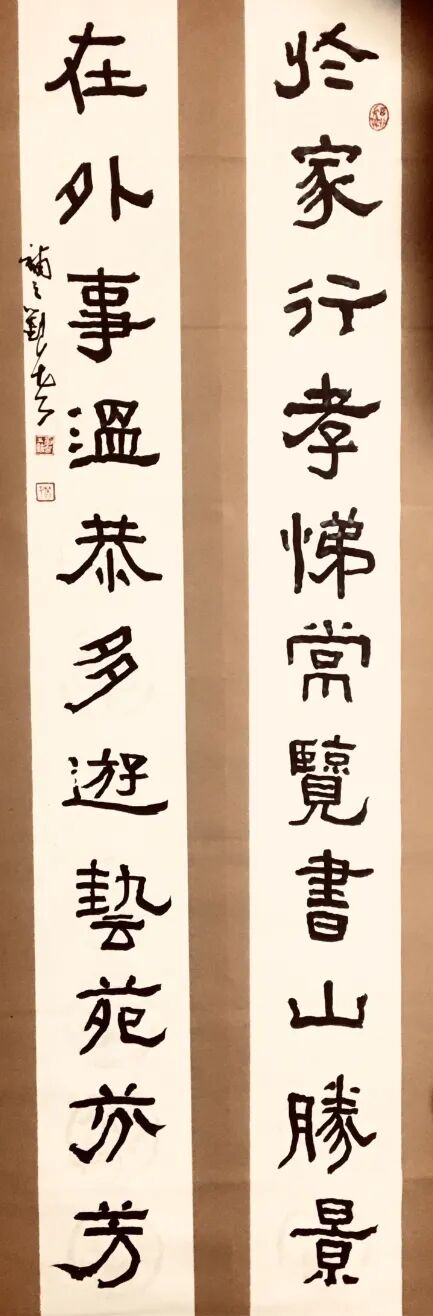 於家行孝悌常覽書山勝景
在外事溫恭多遊藝苑芬芳
補之